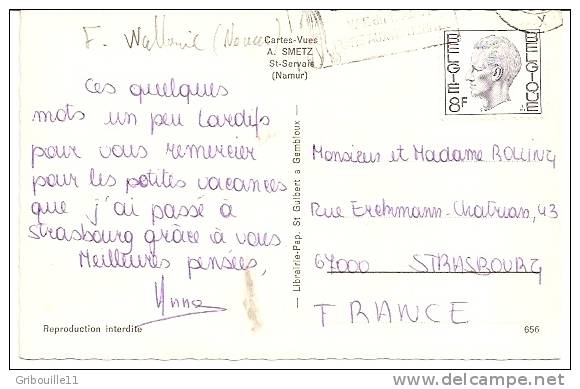 F. Wallonie (Namur)
Cartes-Vues
A. SMETZ
St-Servais
(Namur)
BELGIE 8F BELGIQUE
Ces quelques
mots un peu tardifs
pour vous remercier
pour les petites vacances
que j'ai passé à
Strasbourg grâce à vous
Meilleures pensées,
Anna
Librairie-Pap. St Guibert a Gembloux
Monsieur et Madame ROLLING
Rue Erckmann-Chatrian, 43
67000 STRASBOURG
FRANCE
Reproduction interdite
656
Gribouille11
delcampe.net